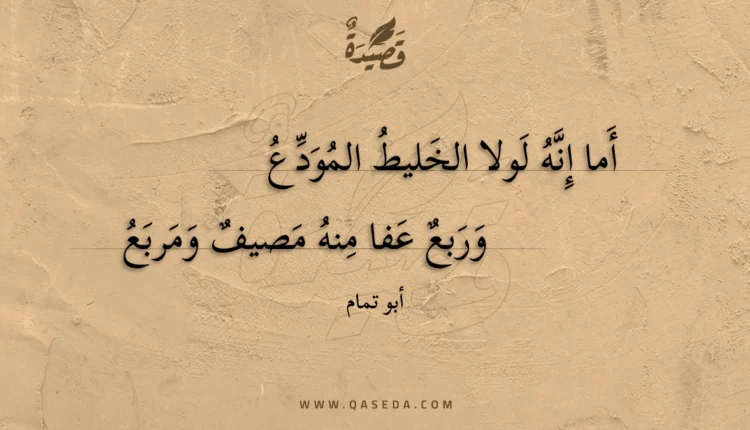 قَصِيدَةٌ
أَما إِنَّهُ لَولا الخَليطُ المُوَدِّعُ
وَرَبعٌ عَفا مِنهُ مَصيفٌ وَمَربَعُ
أبو تمام
WWW.QASEDA.COM